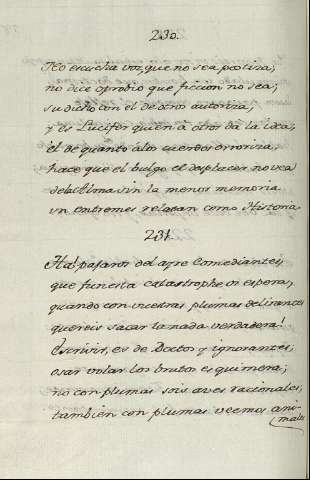 230.
No escucha voz, que no sea postiza;
no dice oprobio que ficcion no sea;
su dicho con el de otros autoriza,
y es Lucifer quien à otros dà la idea;
el de quanto a los cuerdos orroriza,
hace que el bulgo el desplacer no vea
de la Alma sin la menos memoria
vn entremes relatan como Historia
231.
Ha! pajaros del ayre Comediantes,
que funesta catastrophe os espera,
quando con vuestras plumas delirantes
quereis sacar la nada verdadera!
Escrivir, es de Doctos y ignorantes,
osar volar los brutos es quimera;
no con plumas sois aves racionales,
tambien con plumas veemos ani-
males